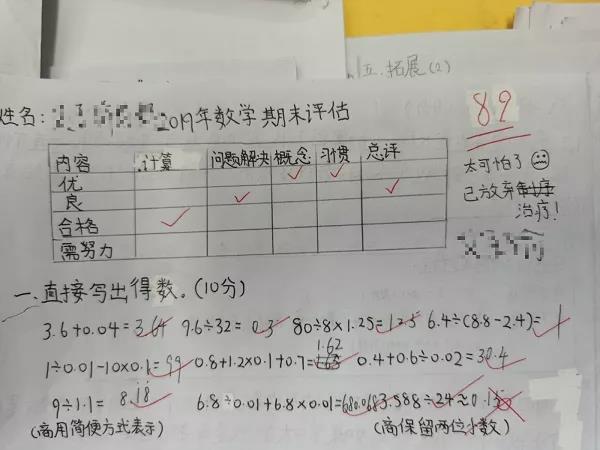 五.拓展(2)
姓名: 2019年数学期末评估
89
内容 计算 问题解决 概念 习惯 总评
优
良
合格
需努力
太可怕了
已放弃
治疗!
一.直接写出得数。(10分)
3.6+0.04=3.64 9.6÷32=0.3 80÷8×1.25=12.5 6.4÷(8.8-2.4)=1
1.62
1÷0.01-10×0.1=99 0.8+1.2×0.1+0.7= 0.4+0.6÷0.02=30.4
9÷1.1=8.18 6.8÷0.01+6.8×0.01=680.068 3.588÷24≈0.15
(商用简便方式表示) (商保留两位小数)